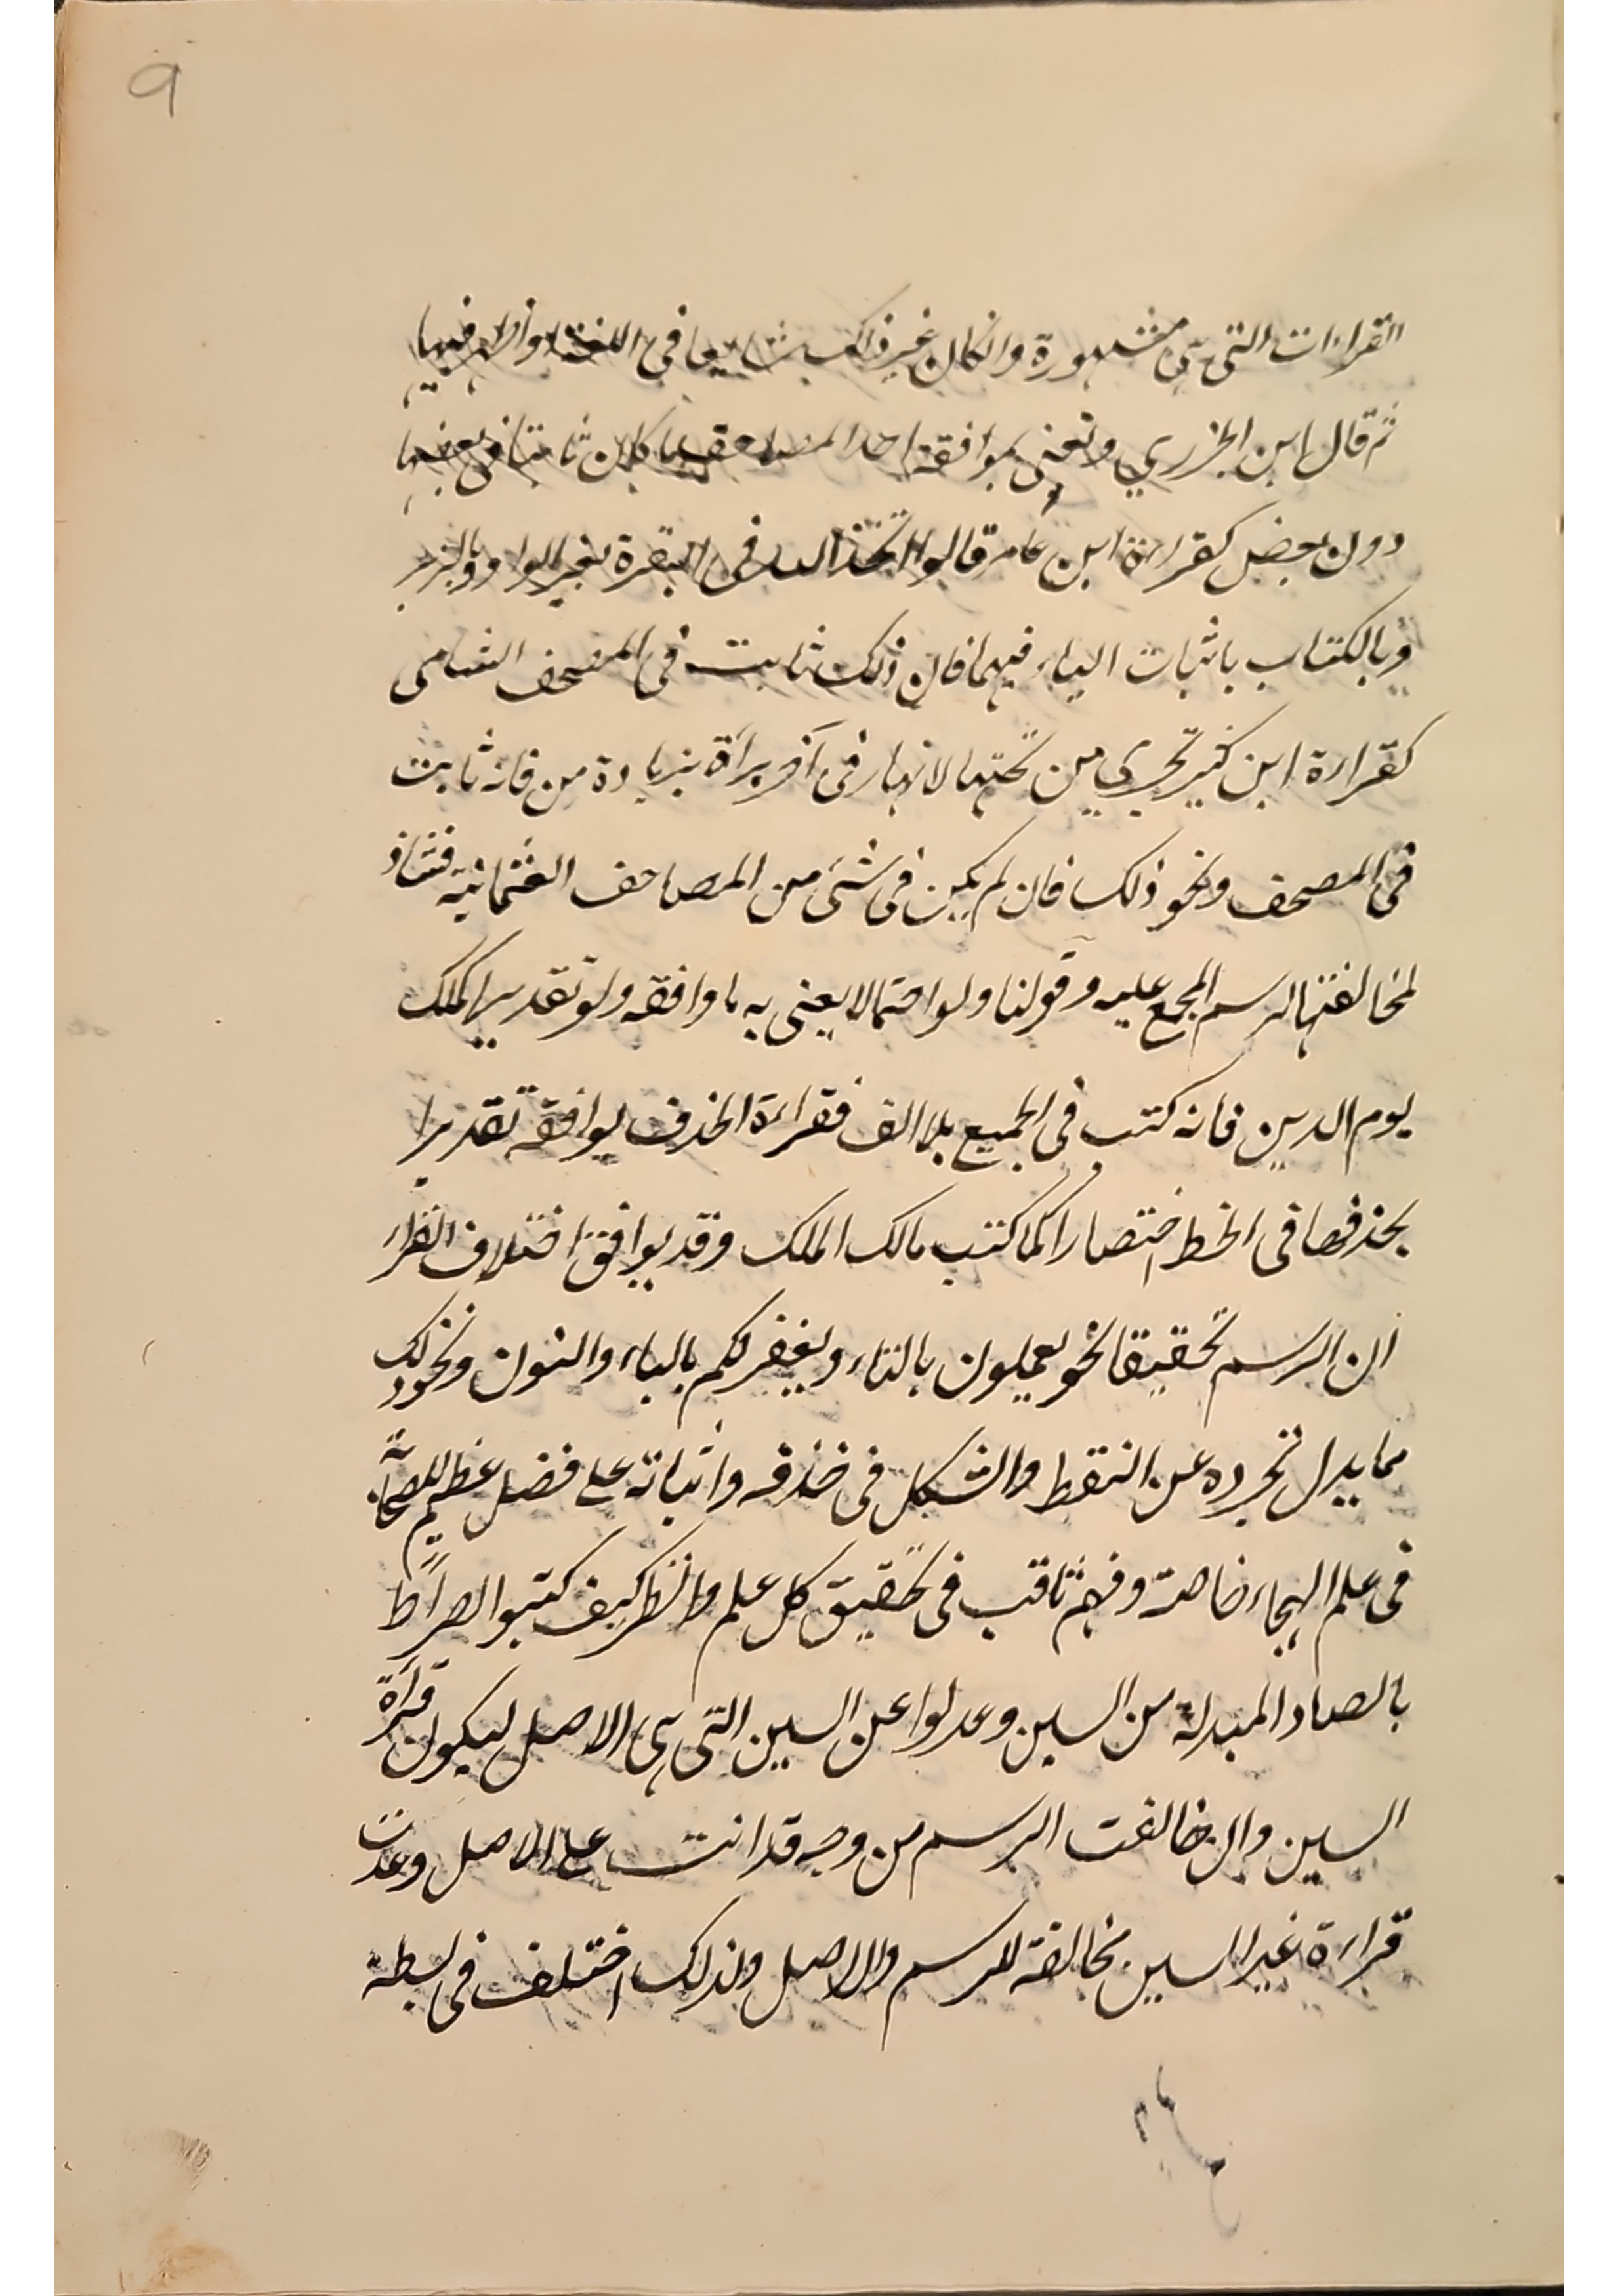 ٩
القراءات التى هى مشهورة وانكان غير ذلك شايعا فى اللغة واظهر فيها
ثم قال ابن الجزري ونعنى بموافقة احد المصاحف ما كان ثابتا فى بعضها
دون بعض كقراءة ابن عامر قالوا اتخذ الله فى البقرة بغير الواو وبالزبر
وبالكتاب باثبات الباء فيهما فان ذلك ثابت فى المصحف الشامى
كقراءة ابن كثير تجري من تحتها الانهار فى آخر براءة بزيادة من فانه ثابت
فى المصحف ونحو ذلك فان لم يكن فى شئ من المصاحف العثمانية فشاذ
لمخالفتها الرسم المجمع عليه وقولنا ولو احتمالا يعنى به ما وافقه ولو تقديرا كملك
يوم الدين فانه كتب فى الجميع بلا الف فقراءة الحذف يوافقه تقديرا
بحذفها فى الخط اختصارا كما كتب مالك الملك وقد يوافق اختلاف القراء
ان الرسم تحقيقا نحو يعملون بالتاء ويغفر لكم بالياء والنون ونحو ذلك
مما يدل تجرده عن النقط والشكل فى حذفه واثباته على فضل عظيم للصحابة
فى علم الهجاء خاصة وفهم ثاقب فى تحقيق كل علم وانظر كيف كتبوا الصراط
بالصاد المبدلة من السين وعدلوا عن السين التى هى الاصل ليكون قراءة
السين وان خالفت الرسم من وجه قد اتت على الاصل وعدت
قراءة غير السين مخالفة للرسم والاصل ولذلك اختلف فى بسطة